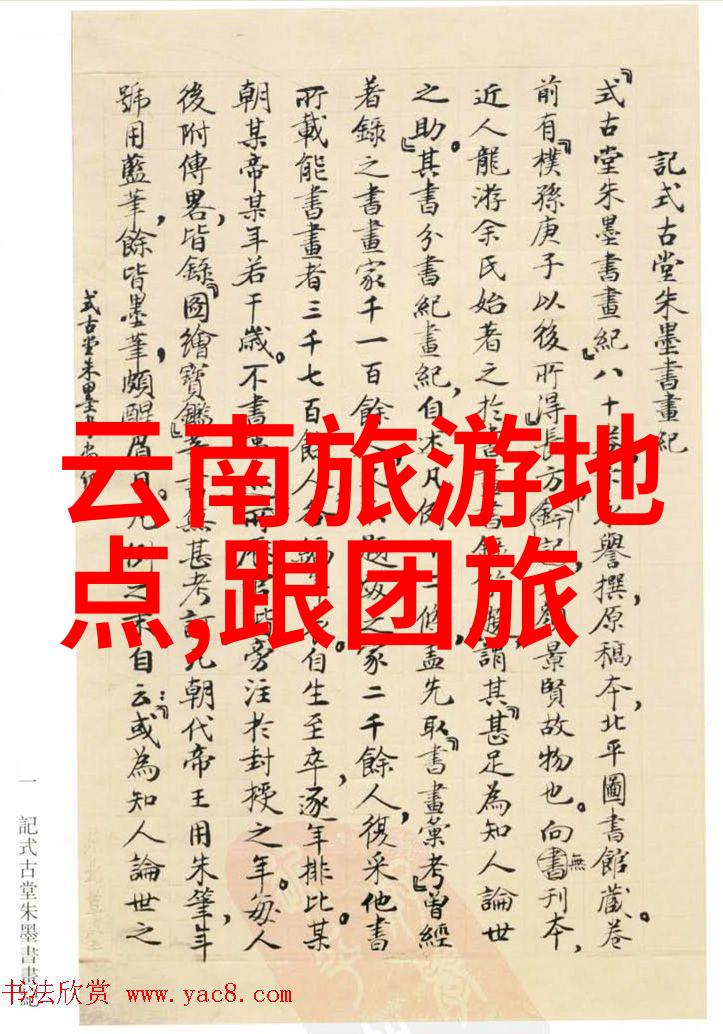 記式古堂朱墨書畫紀
『式古堂朱墨書畫紀』八十卷，永譽撰，原稿本，北平圖書館藏。卷
前有『樸孫庚子以後所得』長方印記，景賢故物也。向無刊本，
近人龍游余氏始著之於書畫書錄，謂其『甚足為知人論世
之助。』其書分書紀畫紀，自述凡例十二條，蓋先取『書畫彙考』曾經
著錄之書畫家千一百餘人，之家二千餘人，復采他書
所載能書畫者三千七百餘人，自生至卒，逐年排比，某
朝某帝某年若干歲。不書，皆旁注於封授之年。每人
後附傳畧，皆錄『圖繪寶鑑』無甚考訂，朝代帝王用朱筆，年
號用藍筆，餘皆墨筆，頗醒眉目。凡例之末自云：『或為知人論世之
式古堂朱墨書
一
記式古堂朱墨書畫紀
云南旅游地
点,跟团旅
书法欣赏 www.yac8.com